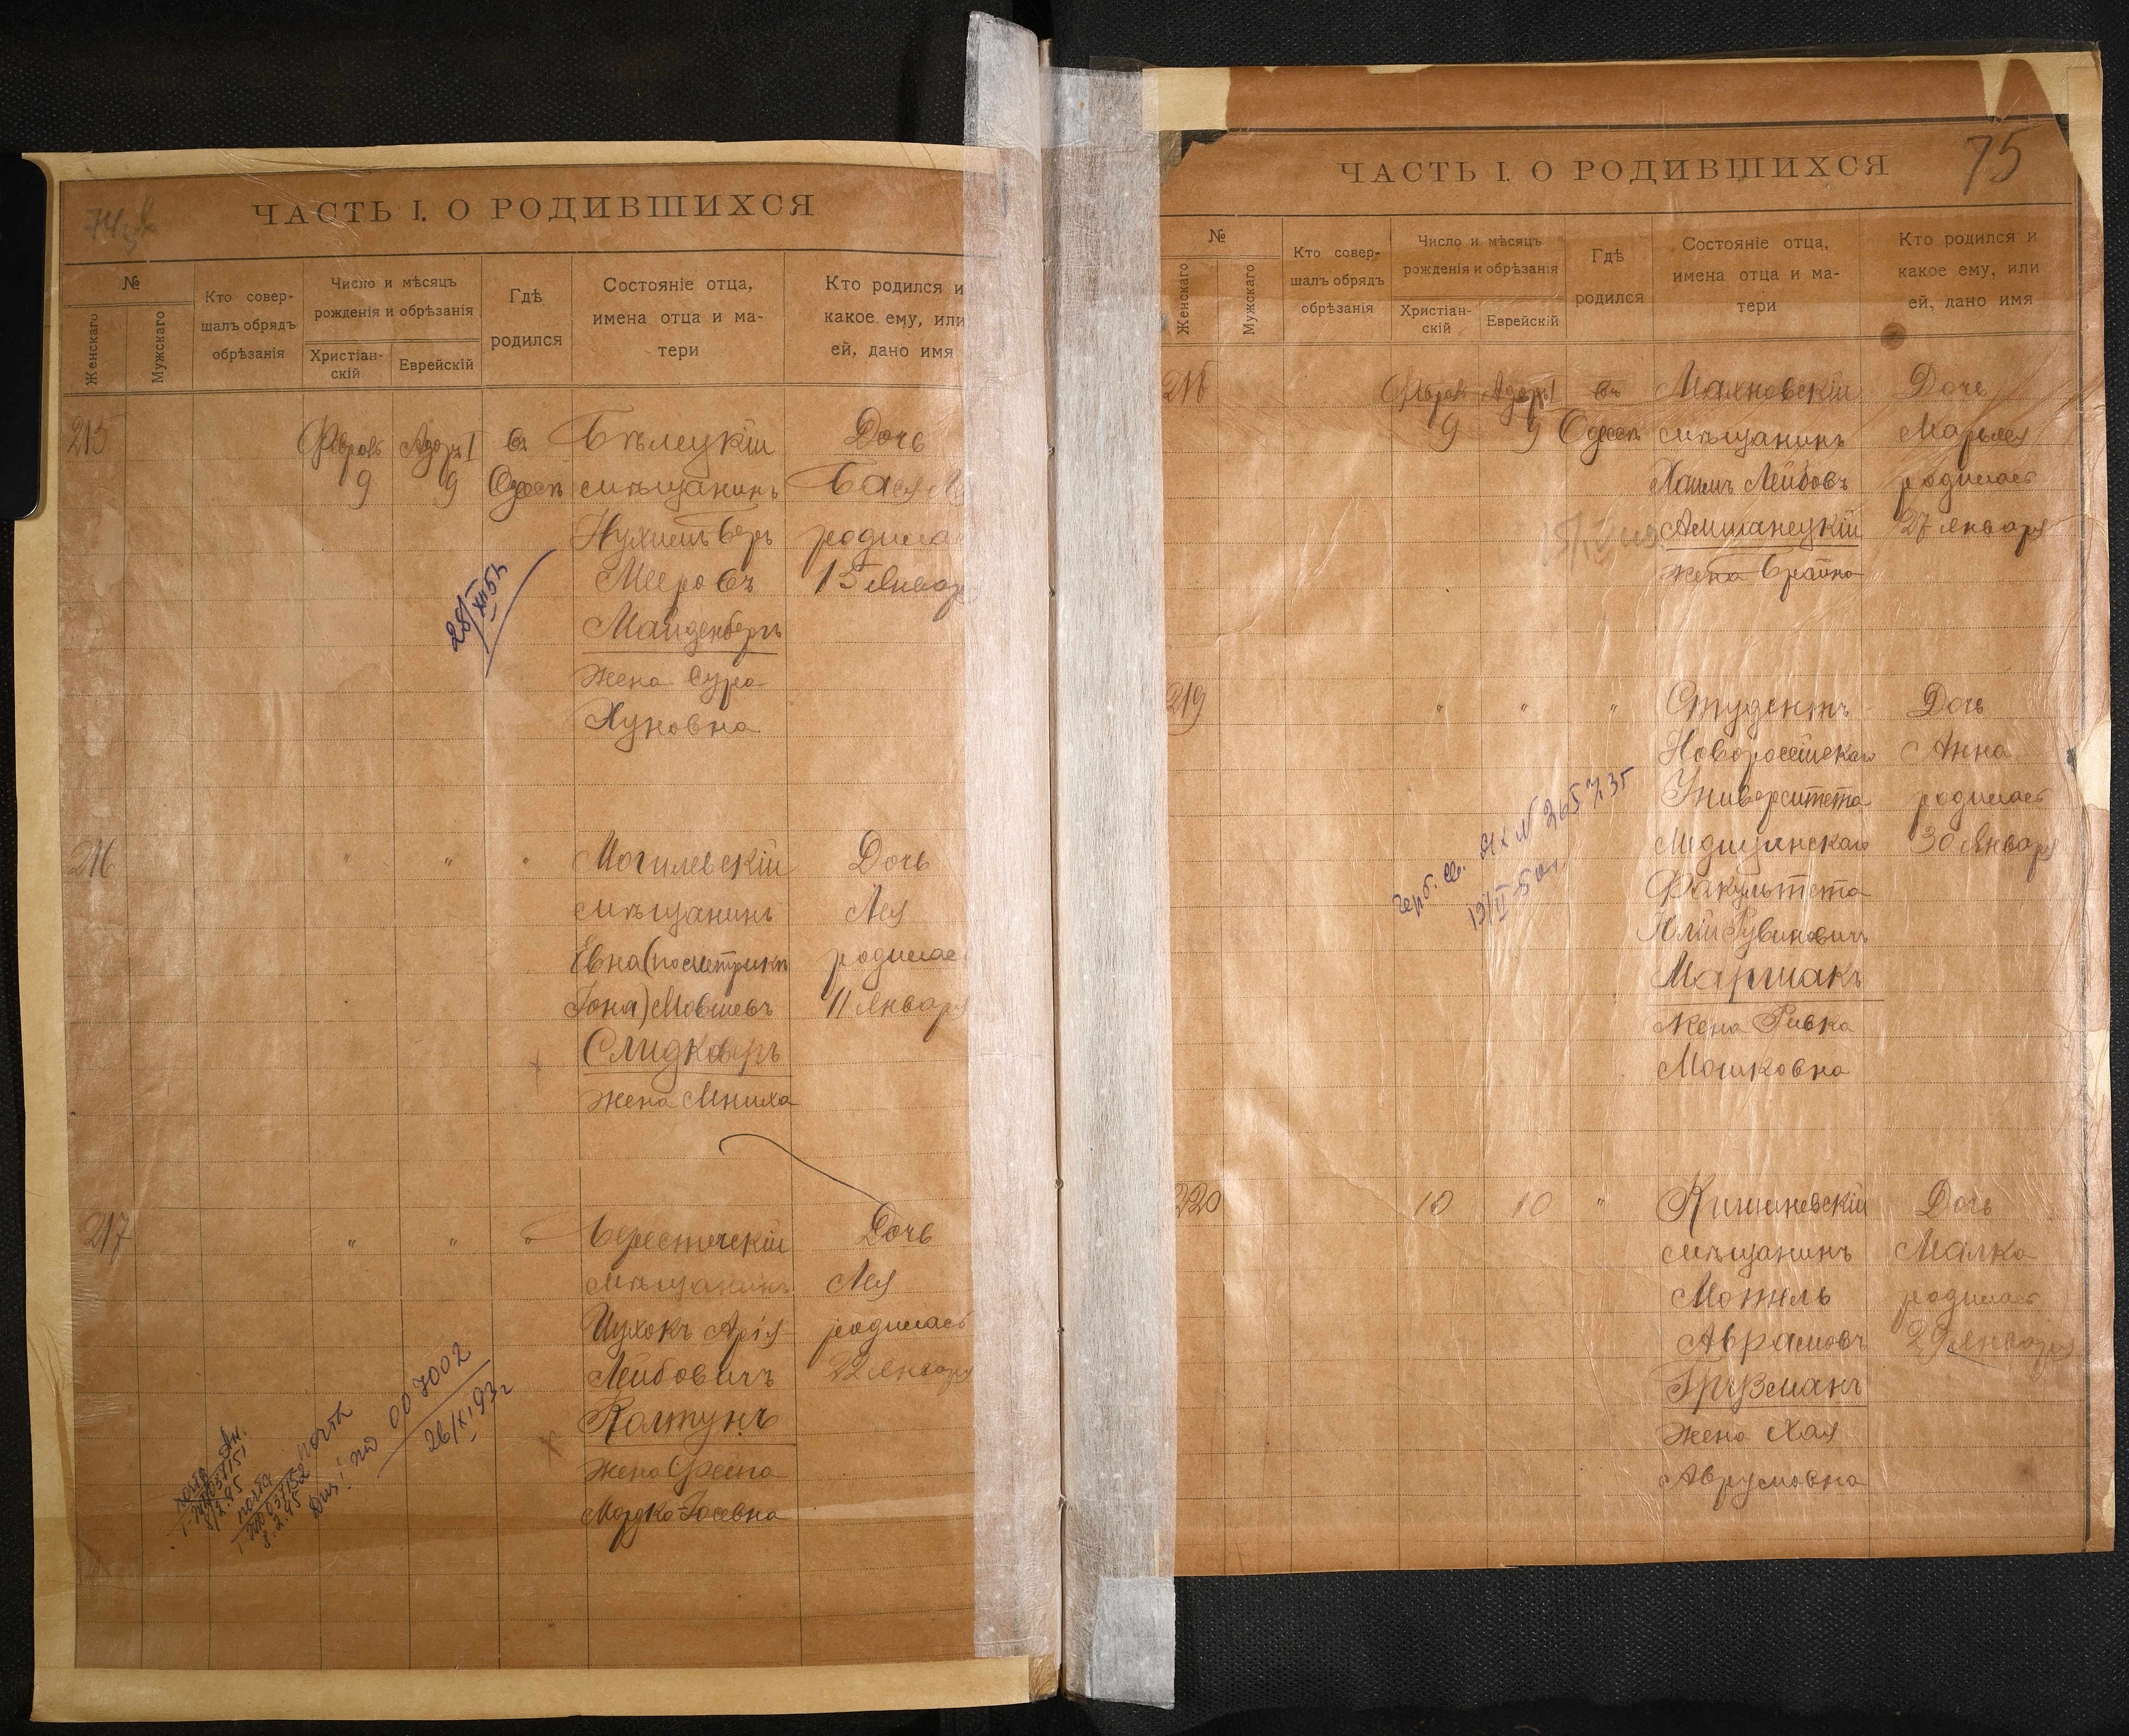 ЧАСТЬ I. О РОДИВШИХСЯ
№
Женскаго
Мужскаго
Кто совер-
шалъ обрядъ
обрѣзанія
Число и мѣсяцъ
рожденія и обрѣзанія
Христіан-
скій
Еврейскій
Гдѣ
родился
Состояніе отца,
имена отца и ма-
тери
Кто родился и
какое ему, или
ей, дано имя
215
Адаръ I
9
9
въ
Одессѣ
Бѣлецкій
мѣщанинъ
Нухимъ Беръ
Мееровъ
Майденбергъ
жена Сура
Хуновна
Дочь
Бася
15 Январ
28/XII 51
216
"
"
"
Могилевскій
мѣщанинъ
Евна (по метрикѣ
Іона) Мовшевъ
жена Мниха
Дочь
Лея
родилась
11 января
217
"
"
"
Берестечскій
мѣщанинъ
Цухокъ Арія
Лейбовичъ
Колтунъ
жена Фейга
Мордко-Іосевна
Дочь
Лея
родилась
22 января
007002
26/XI 93г
ЧАСТЬ I. О РОДИВШИХСЯ
75
№
Женскаго
Мужскаго
Кто совер-
шалъ обрядъ
обрѣзанія
Число и мѣсяцъ
рожденія и обрѣзанія
Христіан-
скій
Еврейскій
Гдѣ
родился
Состояніе отца,
имена отца и ма-
тери
Кто родился и
какое ему, или
ей, дано имя
Адаръ I
9
9
въ
Одессѣ
Махновскій
мѣщанинъ
Хаимъ Лейбовъ
жена Брайна
Дочь
Марьяся
родилась
27 января
219
"
"
"
Студентъ
Новороссійскаго
Университета
Медицинскаго
Факультета
Юлій Рувиновичъ
Маршакъ
жена Ривка
Мошковна
Дочь
Анна
родилась
30 января
№ 265735
220
10
10
"
Кишиневскій
мѣщанинъ
Мотель
Аврамовъ
Грузманъ
жена Хая
Аврумовна
Дочь
Малка
родилась
29 января